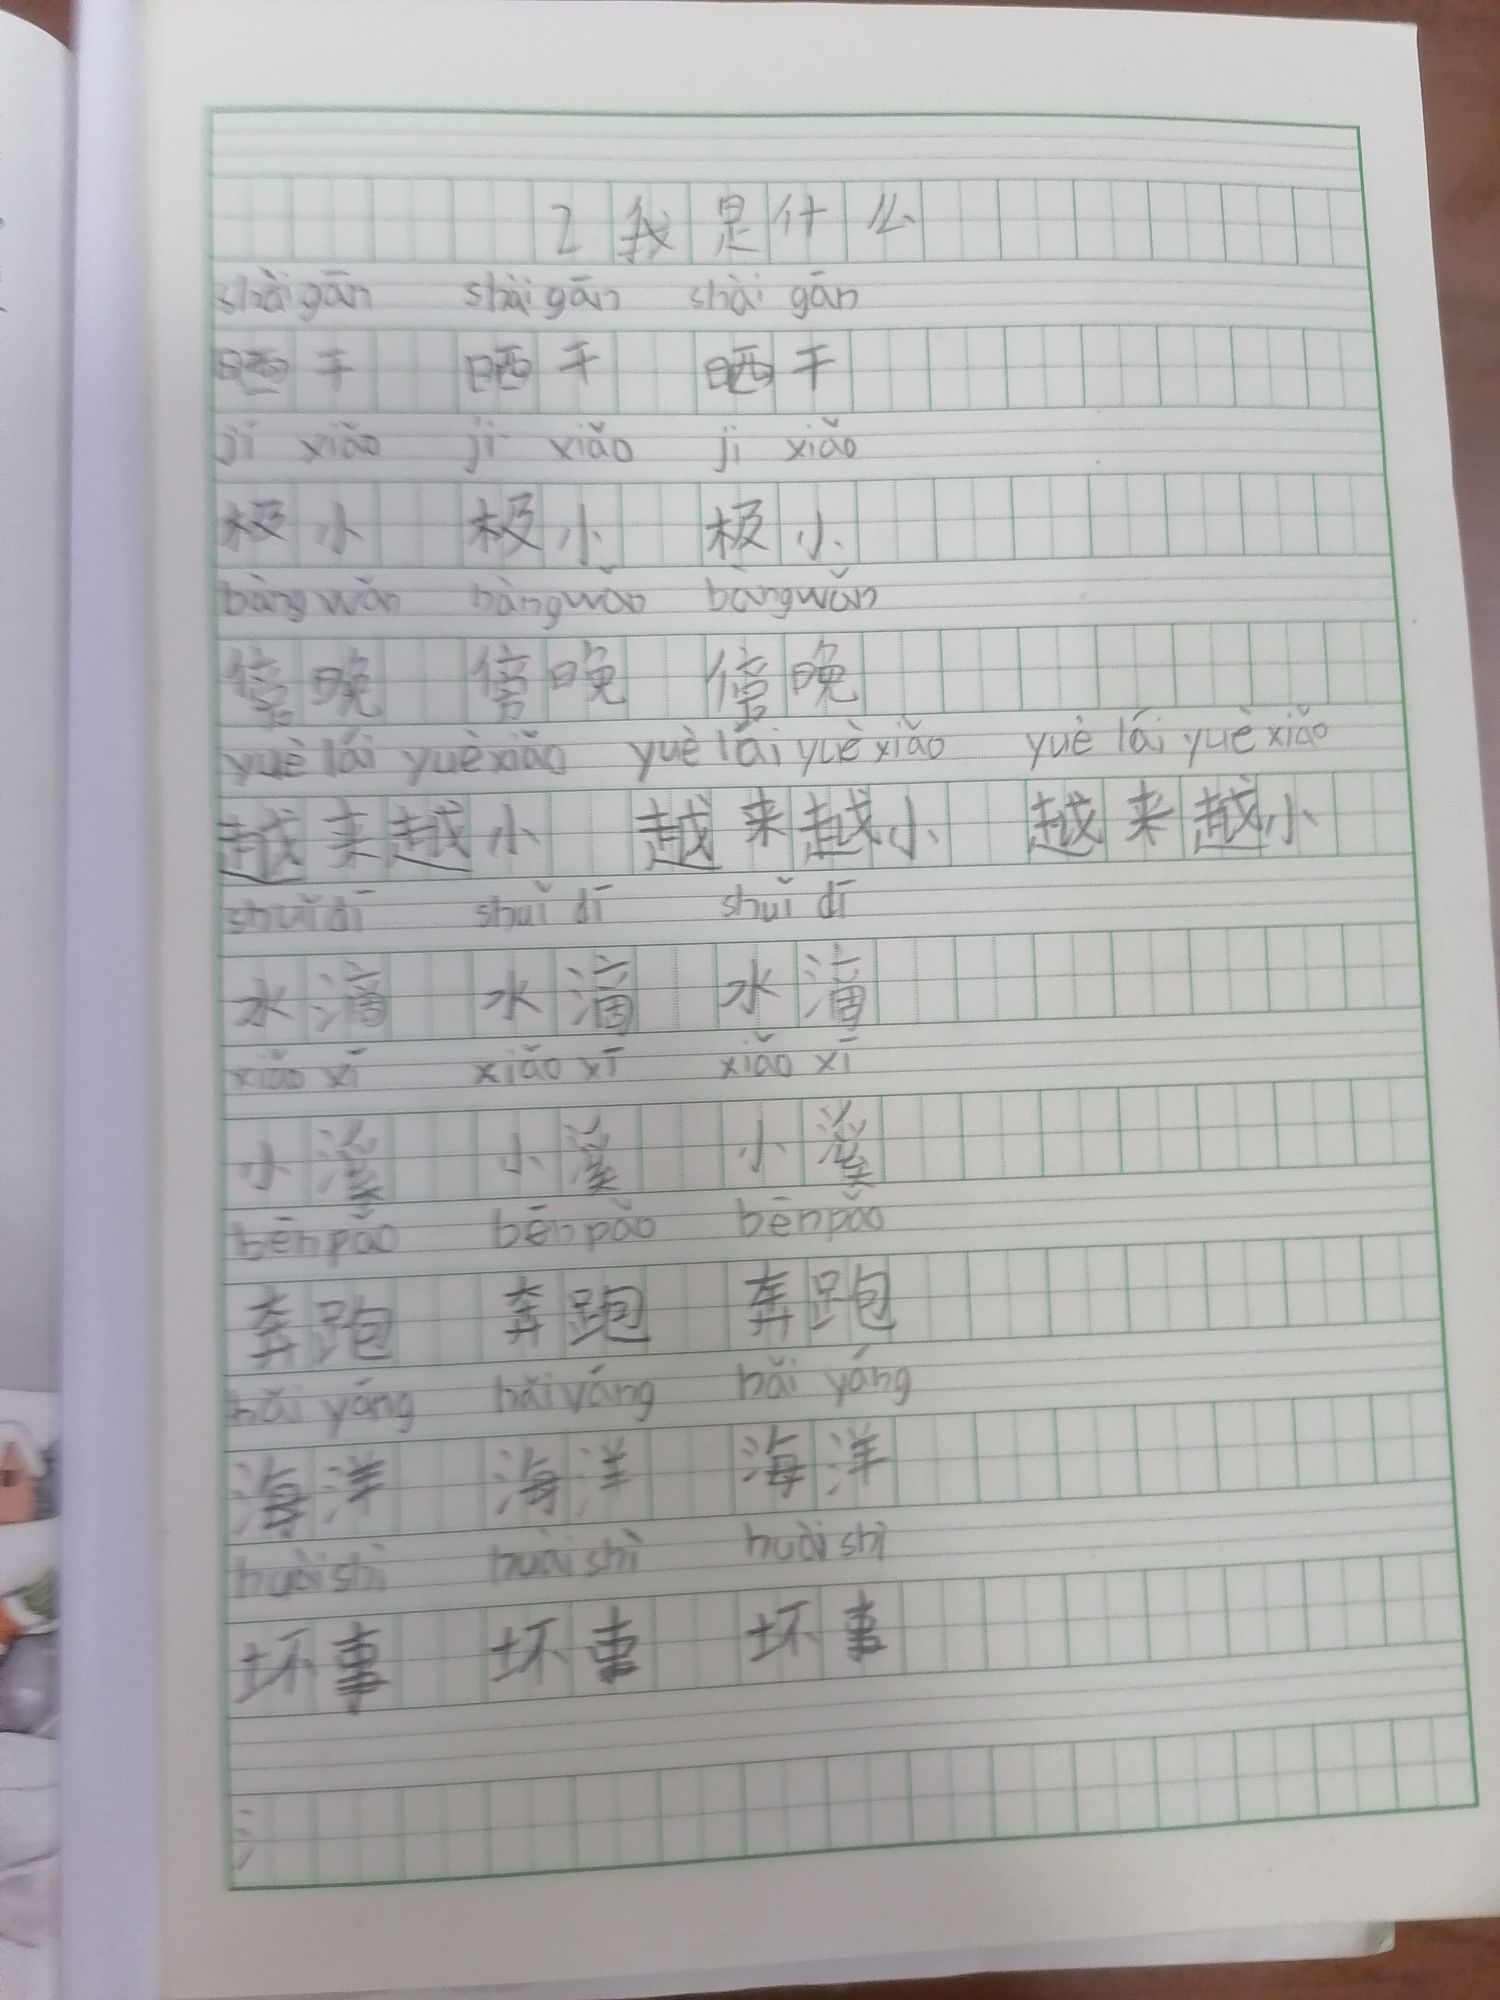 2 我是什么
shài gān shài gān shài gān
晒干 晒干 晒干
jí xiǎo jí xiǎo jí xiǎo
极小 极小 极小
bàng wǎn bàng wǎn bàng wǎn
傍晚 傍晚 傍晚
yuè lái yuè xiǎo yuè lái yuè xiǎo yuè lái yuè xiǎo
越来越小 越来越小 越来越小
shuǐ dī shuǐ dī shuǐ dī
水滴 水滴 水滴
xiǎo xī xiǎo xī xiǎo xī
小溪 小溪 小溪
bēn pǎo bēn pǎo bēn pǎo
奔跑 奔跑 奔跑
hǎi yáng hǎi yáng hǎi yáng
海洋 海洋 海洋
huài shì huài shì huài shì
坏事 坏事 坏事
氵